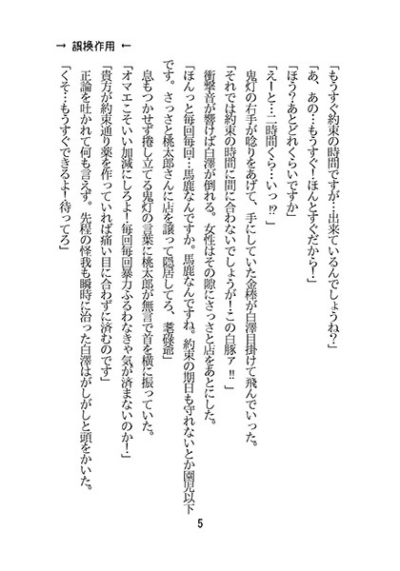 → 誤換作用 ←
「もうすぐ約束の時間ですが…出来ているんでしょうね？」
「あ、あの…もうすぐ！ほんとすぐだから！」
「ほう？あとどれくらいですか」
「えーと…二時間くら…いっ⁉」
鬼灯の右手が唸りをあげて、手にしていた金棒が白澤目掛けて飛んでいった。
「それでは約束の時間に間に合わないでしょうが！この白豚ァ‼」
衝撃音が響けば白澤が倒れる。女性はその隙にさっさと店をあとにした。
「ほんっと毎回毎回…馬鹿なんですか。馬鹿なんですね。約束の期日も守れないとか園児以下
です。さっさと桃太郎さんに店を譲って隠居してろ、耄碌爺」
息もつかせず捲し立てる鬼灯の言葉に桃太郎が無言で首を横に振っていた。
「オマエこそいい加減にしろよ！毎回毎回暴力ふるわなきゃ気が済まないのか！」
「貴方が約束通り薬を作っていれば痛い目に合わずに済むのです」
正論を吐かれて何も言えず。先程の怪我も瞬時に治った白澤はがしがしと頭をかいた。
「くそ…もうすぐできるよ！待ってろ」
5